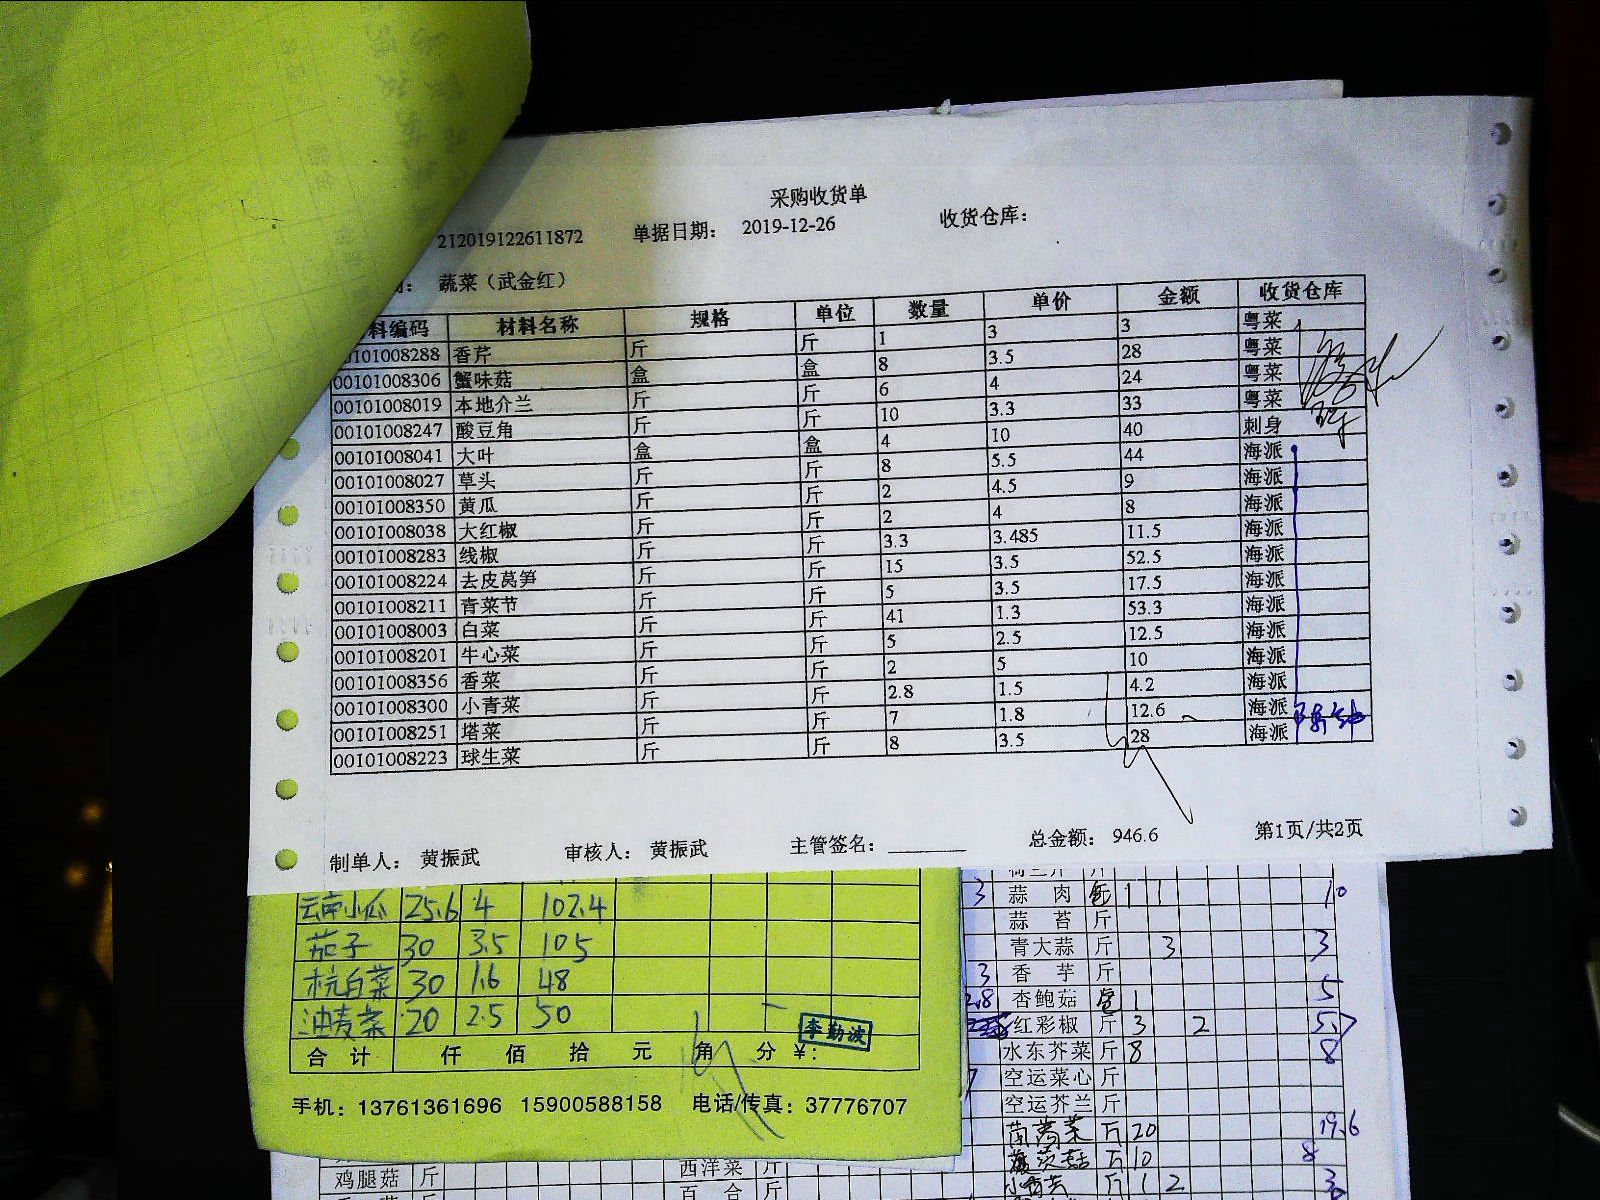 采购收货单
212019122611872 单据日期: 2019-12-26 收货仓库:
: 蔬菜（武金红）
料编码 材料名称 规格 单位 数量 单价 金额 收货仓库
00101008288 香芹 斤 斤 1 3 3 粤菜
00101008306 蟹味菇 盒 盒 8 3.5 28 粤菜
00101008019 本地介兰 斤 斤 6 4 24 粤菜
00101008247 酸豆角 斤 斤 10 3.3 33 粤菜
00101008041 大叶 盒 盒 4 10 40 刺身
00101008027 草头 斤 斤 8 5.5 44 海派
00101008350 黄瓜 斤 斤 2 4.5 9 海派
00101008038 大红椒 斤 斤 2 4 8 海派
00101008283 线椒 斤 斤 3.3 3.485 11.5 海派
00101008224 去皮莴笋 斤 斤 15 3.5 52.5 海派
00101008211 青菜节 斤 斤 5 3.5 17.5 海派
00101008003 白菜 斤 斤 41 1.3 53.3 海派
00101008201 牛心菜 斤 斤 5 2.5 12.5 海派
00101008356 香菜 斤 斤 2 5 10 海派
00101008300 小青菜 斤 斤 2.8 1.5 4.2 海派
00101008251 塔菜 斤 斤 7 1.8 12.6 海派
00101008223 球生菜 斤 斤 8 3.5 28 海派
制单人: 黄振武 审核人: 黄振武 主管签名: 总金额: 946.6 第1页/共2页
云南小瓜 25.6 4 102.4
茄子 30 3.5 105
杭白菜 30 1.6 48
油麦菜 20 2.5 50
李勤波
合计 仟 佰 拾 元 角 分 ¥:
手机: 13761361696 15900588158 电话/传真: 37776707
3 蒜肉 包 1 1 10
蒜苔 斤
青大蒜 斤 3 3
3 香芋 斤
2.8 杏鲍菇 1 5
红彩椒 斤 3 2 5.7
水东芥菜 斤 8 8
7 空运菜心 斤
空运芥兰 斤
斤 20 19.6
斤 10 8
斤 1 2 3
鸡腿菇 斤 西洋菜 斤
百合 斤